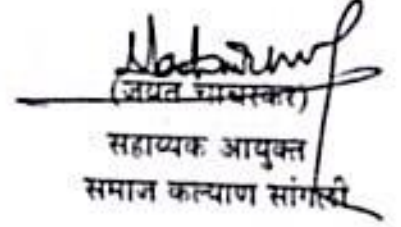 (जयंत चाबस्कर)
सहाय्यक आयुक्त
समाज कल्याण सांगली